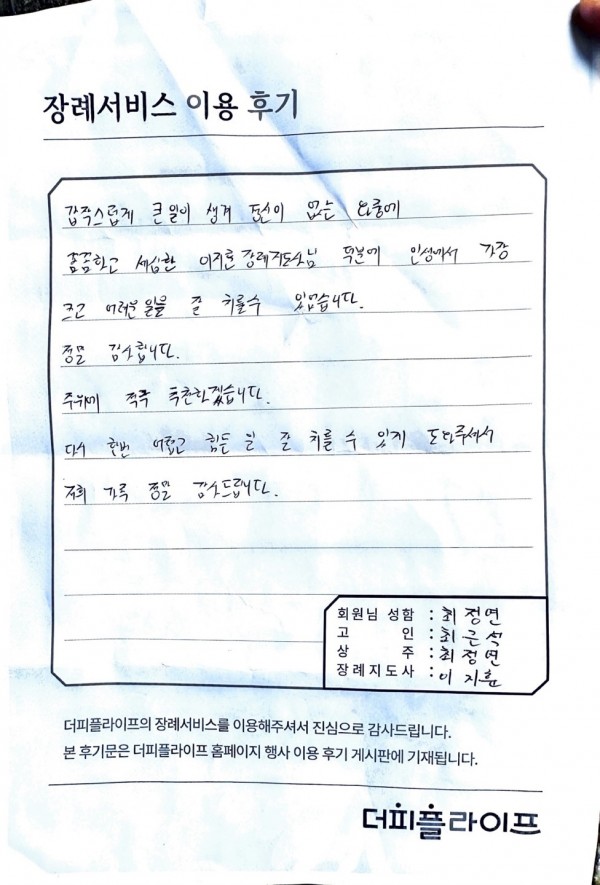 장례서비스 이용 후기
갑작스럽게 큰일이 생겨 정신이 없는 와중에
꼼꼼하고 세심한 이지훈 장례지도사님 덕분에 인생에서 가장
크고 어려운 일을 잘 치를수 있었습니다.
정말 감사합니다.
주위에 적극 추천하겠습니다.
다시 한번 어렵고 힘든 일 잘 치를 수 있게 도와주셔서
저희 가족 정말 감사드립니다.
회원님 성함 : 최정연
고 인 : 최근석
상 주 : 최정연
장례지도사 : 이지훈
더피플라이프의 장례서비스를 이용해주셔서 진심으로 감사드립니다.
본 후기문은 더피플라이프 홈페이지 행사 이용 후기 게시판에 기재됩니다.
더피플라이프